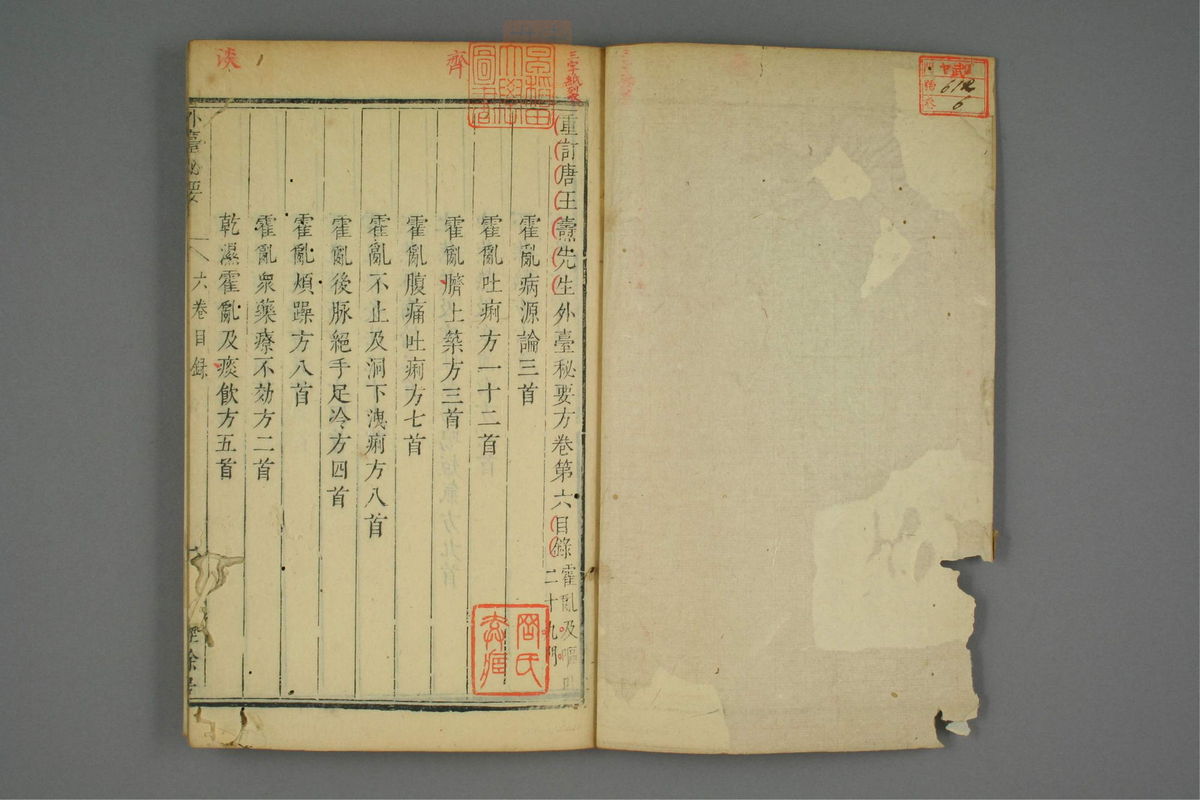 重訂唐王燾先生外臺秘要方卷第六目錄
霍亂及嘔
二十九門
霍亂病源論三首
霍亂吐痢方一十二首
霍亂臍上築方三首
霍亂腹痛吐痢方七首
霍亂不止及洞下洩痢方八首
霍亂後脉絕手足冷方四首
霍亂煩躁方八首
霍亂衆藥療不効方二首
乾濕霍亂及痰飲方五首
外臺秘要
六卷目録
齊
淡
早稲田大學圖書
612
6